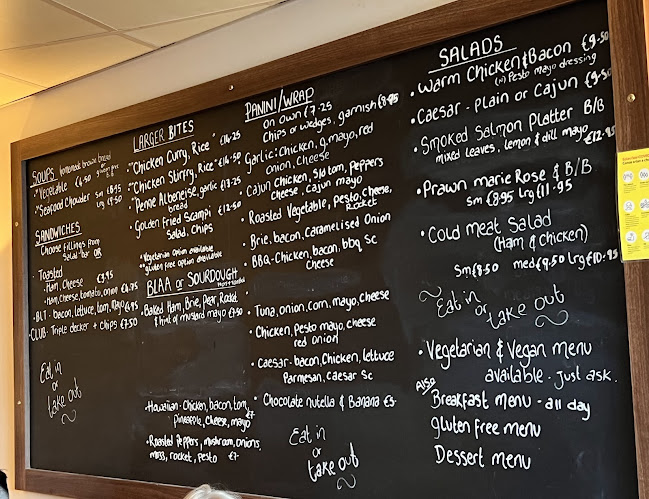 SOUPS homemade brown bread
or
Vegetable €6.50
Seafood Chowder sm €8.95
Lrg €9.50
SANDWICHES
Choose fillings from
Salad bar OR
Toasted
Ham, Cheese €3.95
Ham, cheese, tomato, onion €4.75
BLT - bacon, lettuce, tom, mayo €6.95
CLUB - Triple decker + chips €7.50
Eat in
or
take out
LARGER BITES
"Chicken Curry, Rice"
"Chicken Stirfry, Rice
garlic
bread
Golden Fried Scampi €12.50
Salad, Chips
*Vegetarian Option available
**gluten free option available
BLAA or SOURDOUGH
Baked Ham, Brie, Pear, Rocket
& hint of mustard mayo €7.50
Hawaiian - Chicken, bacon, tom,
pineapple, cheese, mayo €7
Roasted Peppers, mushroom, onions,
mozz, rocket, pesto €7
PANINI/WRAP
on own €7.25
Chips or wedges, garnish
Garlic: Chicken, g.mayo, red
onion, cheese
Cajun Chicken, S/D tom, peppers
Cheese, cajun mayo
Roasted Vegetable, pesto, Cheese,
Rocket
Brie, bacon, caramelised Onion
BBQ - Chicken, bacon, bbq sc
Cheese
Tuna, onion, corn, mayo, cheese
Chicken, Pesto mayo, cheese
red onion
Caesar - bacon, Chicken, lettuce
Parmesan, caesar sc
Chocolate nutella & Banana €5
Eat in
or
take out
SALADS
Warm Chicken & Bacon €9.50
Pesto Mayo dressing
Caesar - plain or Cajun €9.50
Smoked Salmon Platter B/B
mixed leaves, lemon & dill mayo €12.95
Prawn marie Rose & B/B
Sm €8.95 Lrg €11.95
Cold meat Salad
(Ham & chicken)
Sm €8.50 med €9.50 Lrg €10.95
Eat in
or
take out
Vegetarian & Vegan menu
available - Just ask.
Also
Breakfast menu - all day
gluten free menu
Dessert menu